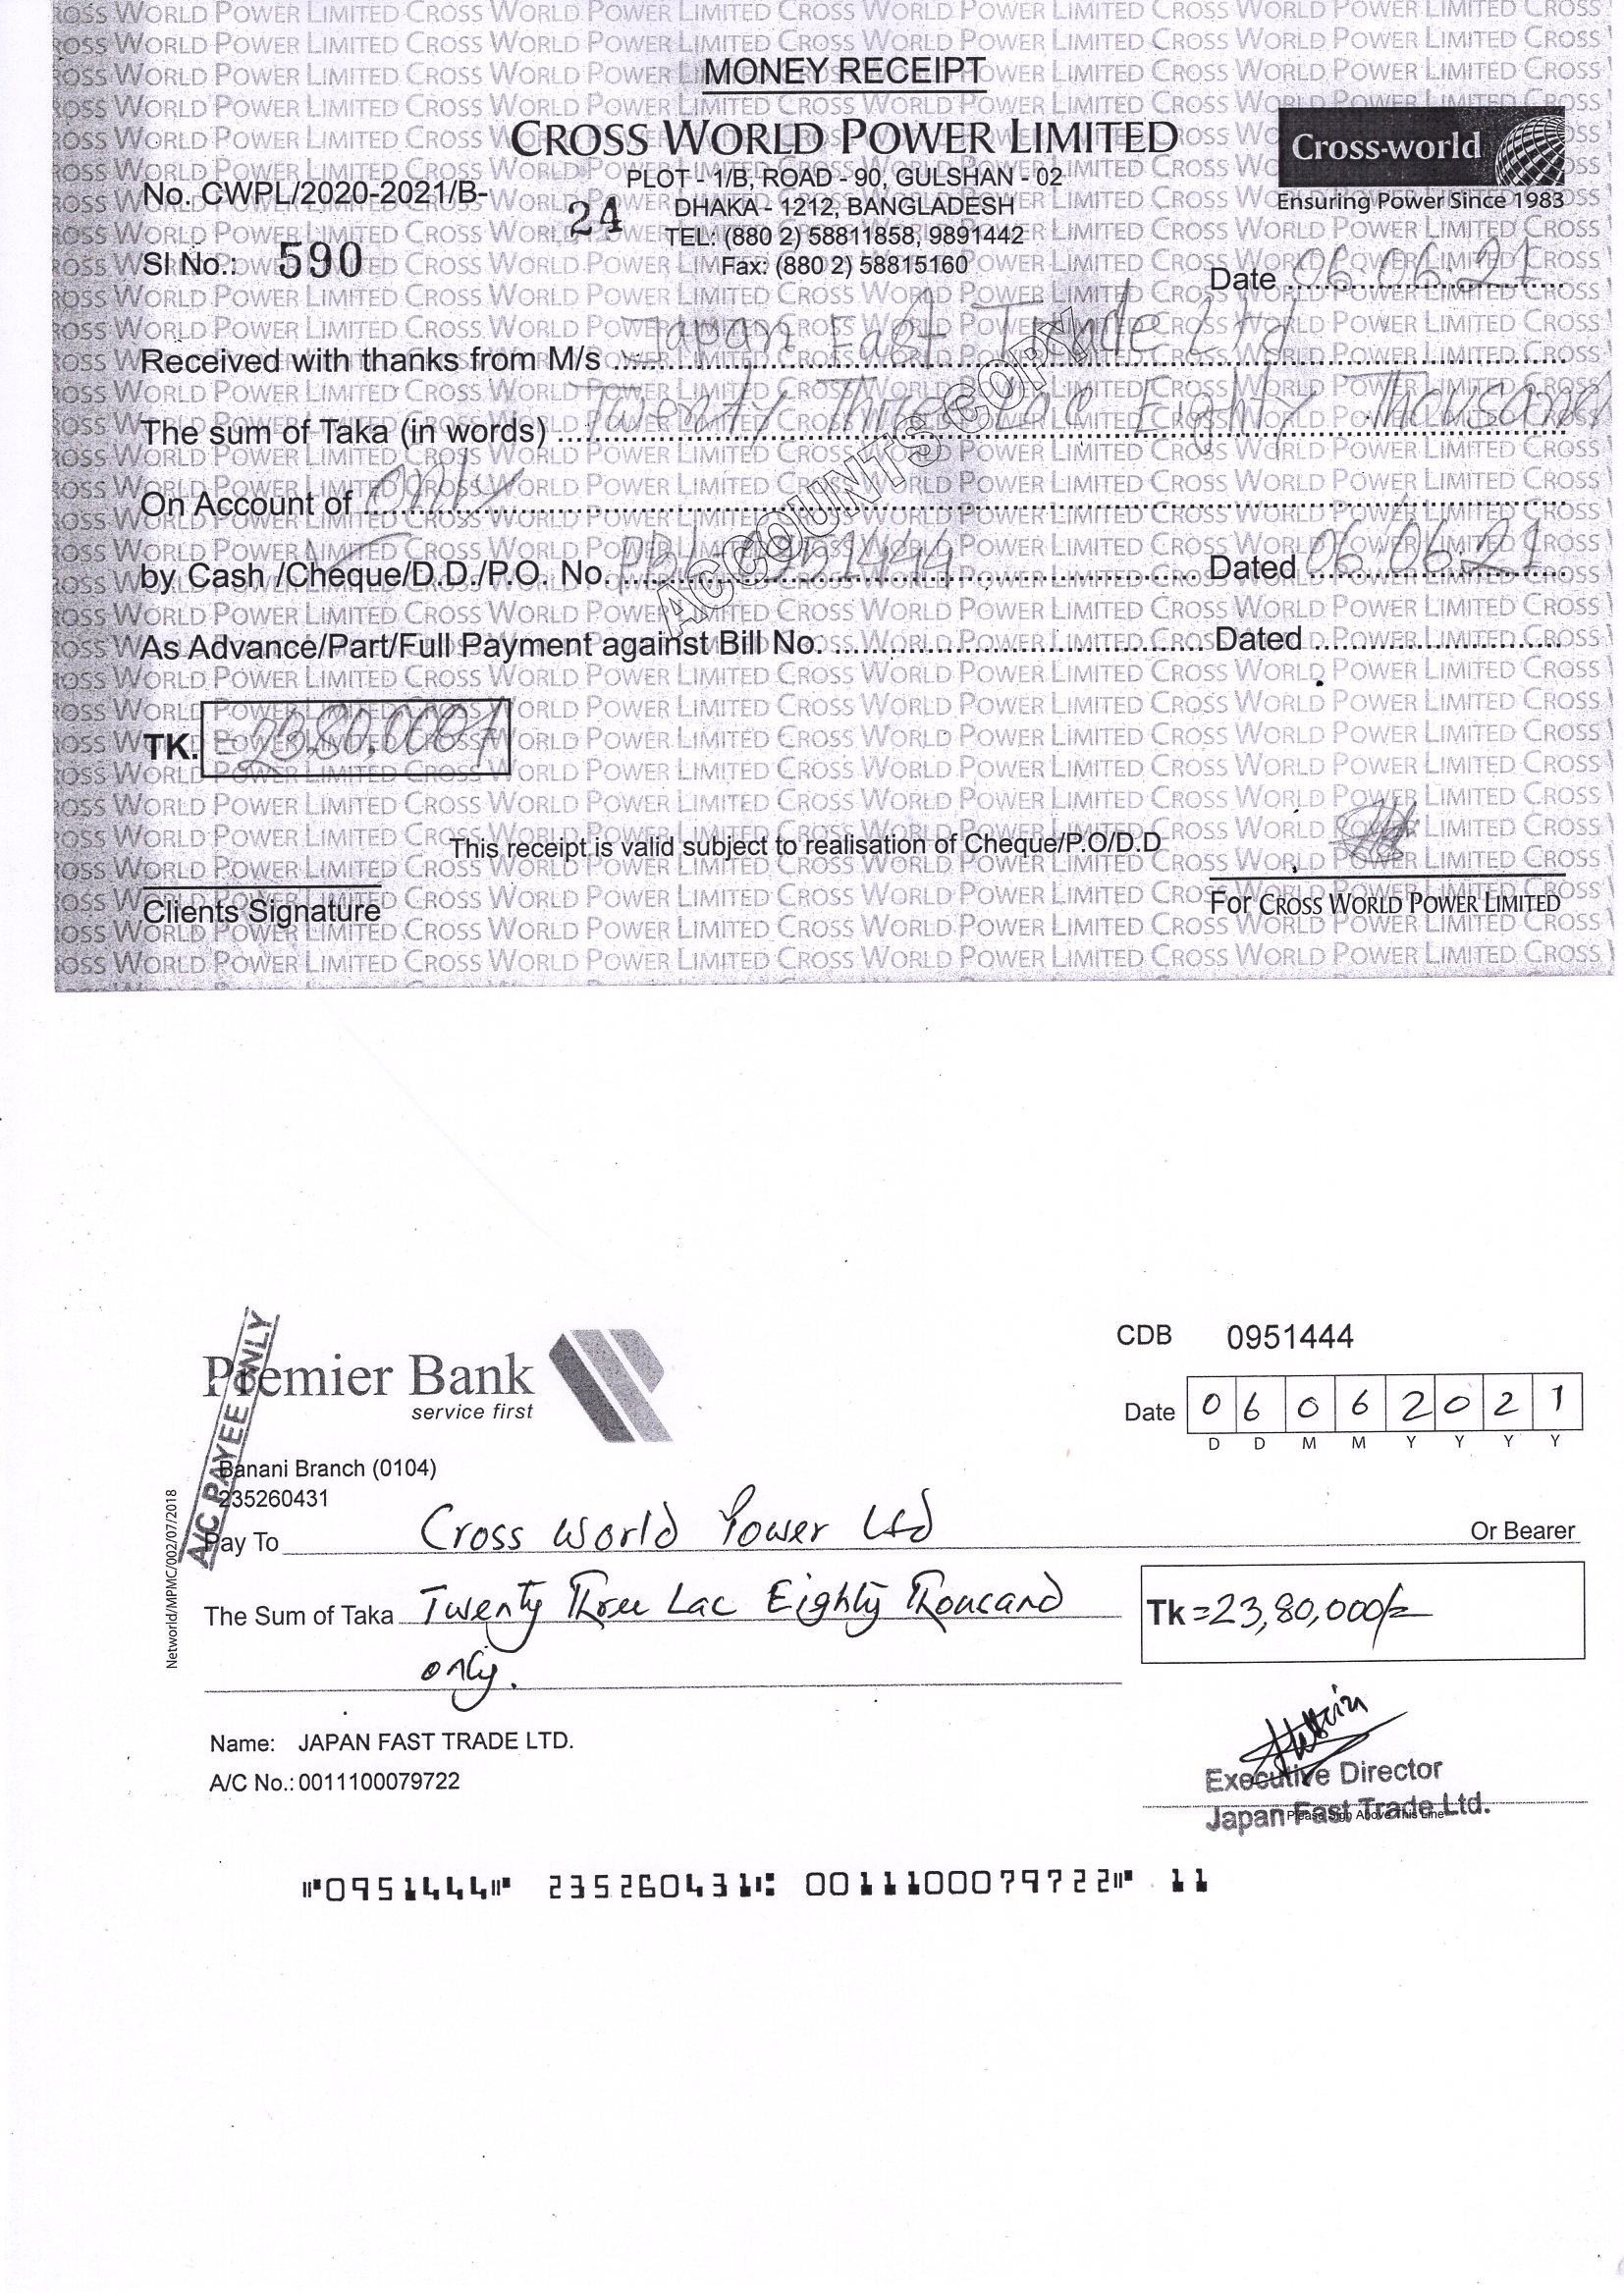 MONEY RECEIPT
CROSS WORLD POWER LIMITED
Cross-world
Ensuring Power Since 1983
PLOT - 1/B, ROAD - 90, GULSHAN - 02
No. CWPL/2020-2021/B- 24
DHAKA - 1212, BANGLADESH
TEL: (880 2) 58811858, 9891442
Sl No.: 590
Fax: (880 2) 58815160
Date 06.06.21
Received with thanks from M/s Japan Fast Trade Ltd
The sum of Taka (in words) Twenty Three Lac Eighty Thousand
On Account of only
by Cash /Cheque/D.D./P.O. No. PBL 0951444 Dated 06.06.21
ACCOUNTS COPY
As Advance/Part/Full Payment against Bill No. Dated
TK. =23,80,000/
This receipt is valid subject to realisation of Cheque/P.O/D.D
Clients Signature
For CROSS WORLD POWER LIMITED
A/C PAYEE ONLY
Premier Bank
service first
CDB 0951444
Date 0 6 0 6 2 0 2 1
D D M M Y Y Y Y
Banani Branch (0104)
235260431
Pay To Cross World Power Ltd Or Bearer
The Sum of Taka Twenty Three Lac Eighty Thousand
only.
Tk =23,80,000/=
Networld/MPMC/002/07/2018
Name: JAPAN FAST TRADE LTD.
A/C No.: 0011100079722
Executive Director
Japan Fast Trade Ltd.
Please Sign Above This Line
⑈0951444⑈ 235260431⑆ 0011100079722⑈ 11